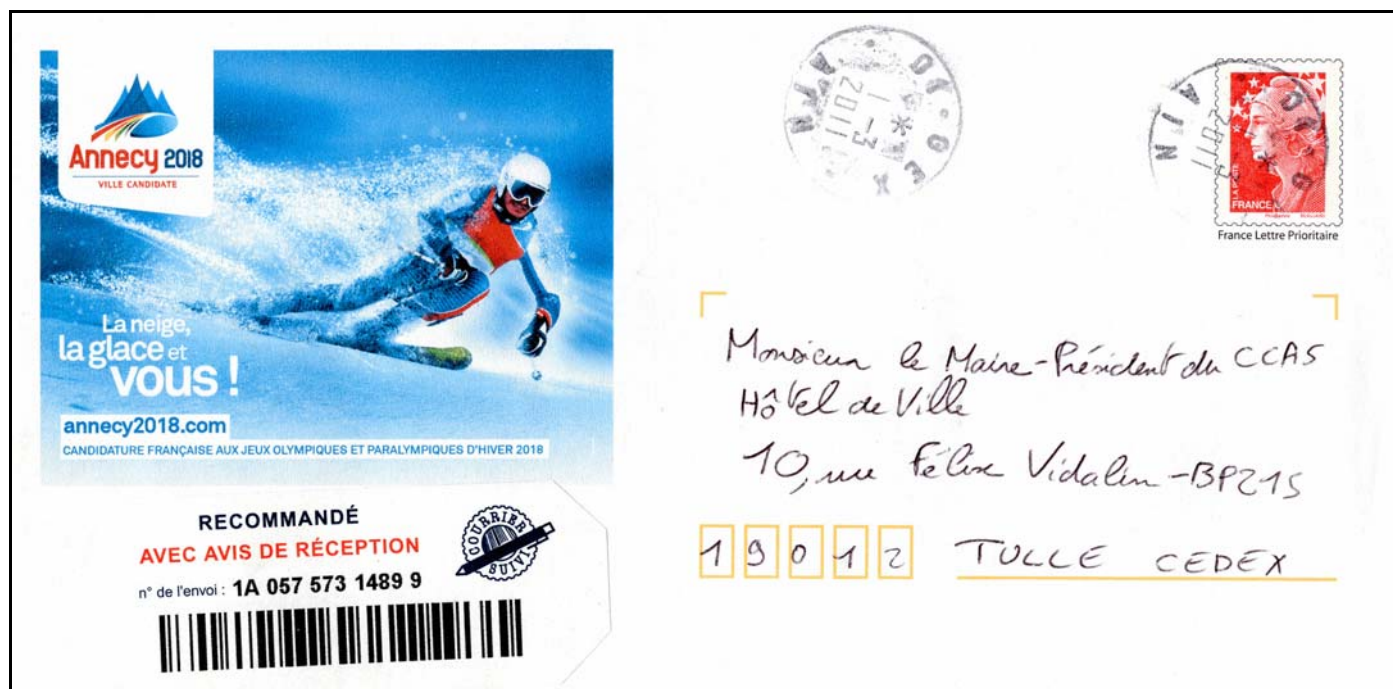 Annecy 2018
VILLE CANDIDATE
La neige,
la glace et
vous !
annecy2018.com
CANDIDATURE FRANÇAISE AUX JEUX OLYMPIQUES ET PARALYMPIQUES D'HIVER 2018
RECOMMANDÉ
AVEC AVIS DE RÉCEPTION
n° de l'envoi : 1A 057 573 1489 9
COURRIER
SUIVI
01-GEX
1-3
2011
AIN
01-G
-3
2011
AIN
LA POSTE
FRANCE
France Lettre Prioritaire
Monsieur le Maire-Président du CCAS
Hôtel de Ville
10, rue Félix Vidalin-BP215
19012 TULLE CEDEX